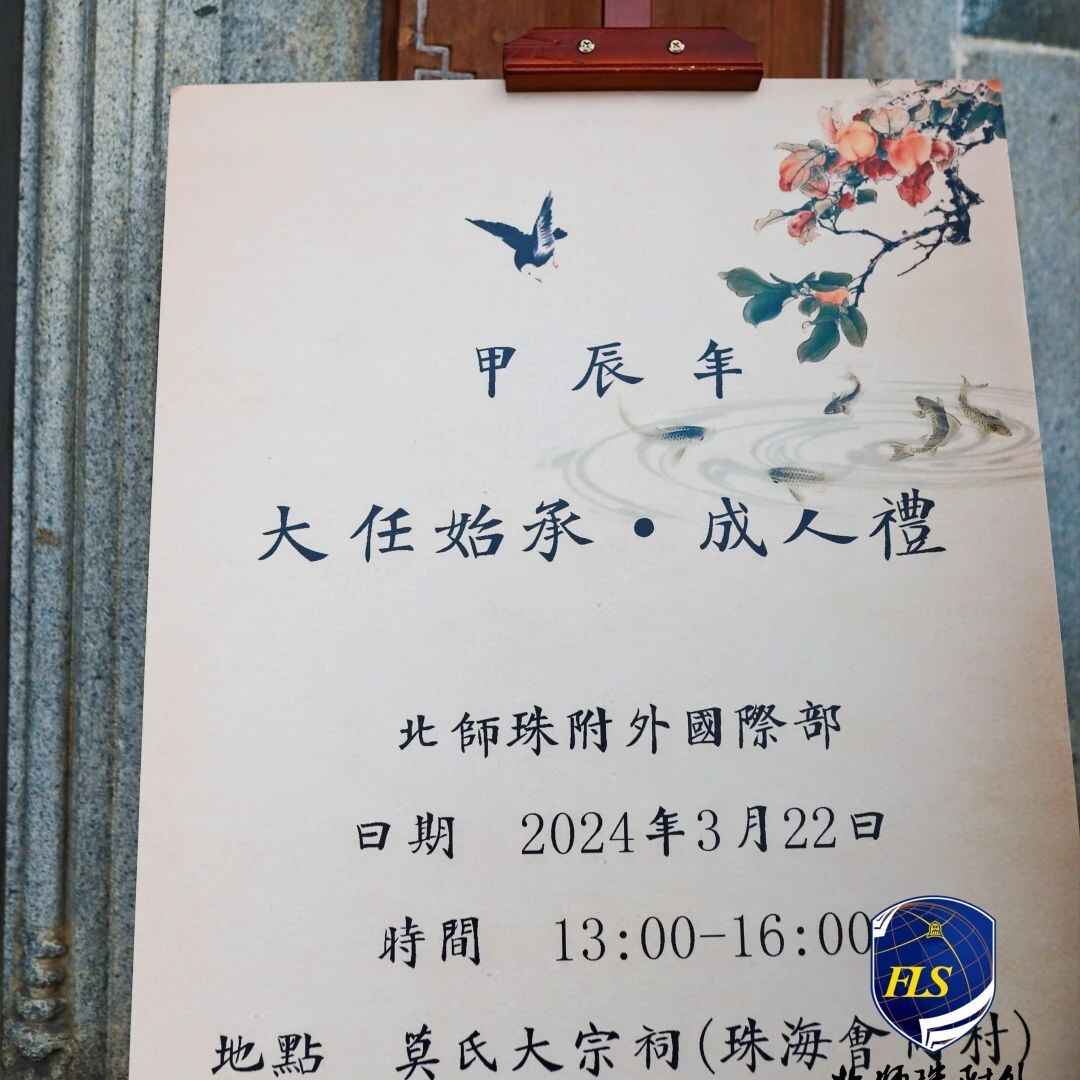 甲辰年
大任始承·成人禮
北師珠附外國際部
日期 2024年3月22日
時間 13:00-16:00
地點 莫氏大宗祠(珠海會村)
FLS
北師珠附外